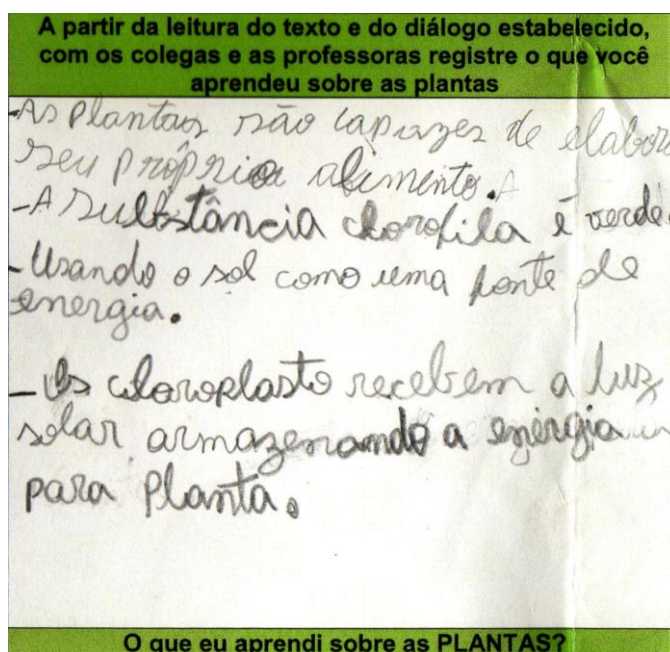 A partir da leitura do texto e do diálogo estabelecido,
com os colegas e as professoras registre o que você
aprendeu sobre as plantas
-As plantas são capazes de elabora
seu próprio alimento.
-A substância clorofila é verde.
-Usando o sol como uma fonte de
energia.
-Os cloroplasto recebem a luz
solar armazenando a energia
para Planta.
O que eu aprendi sobre as PLANTAS?